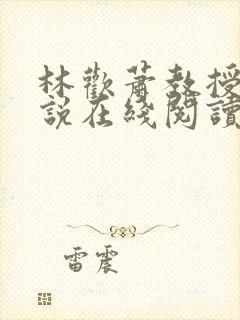 林歡蕭教授
說在綫閱讀
雷震